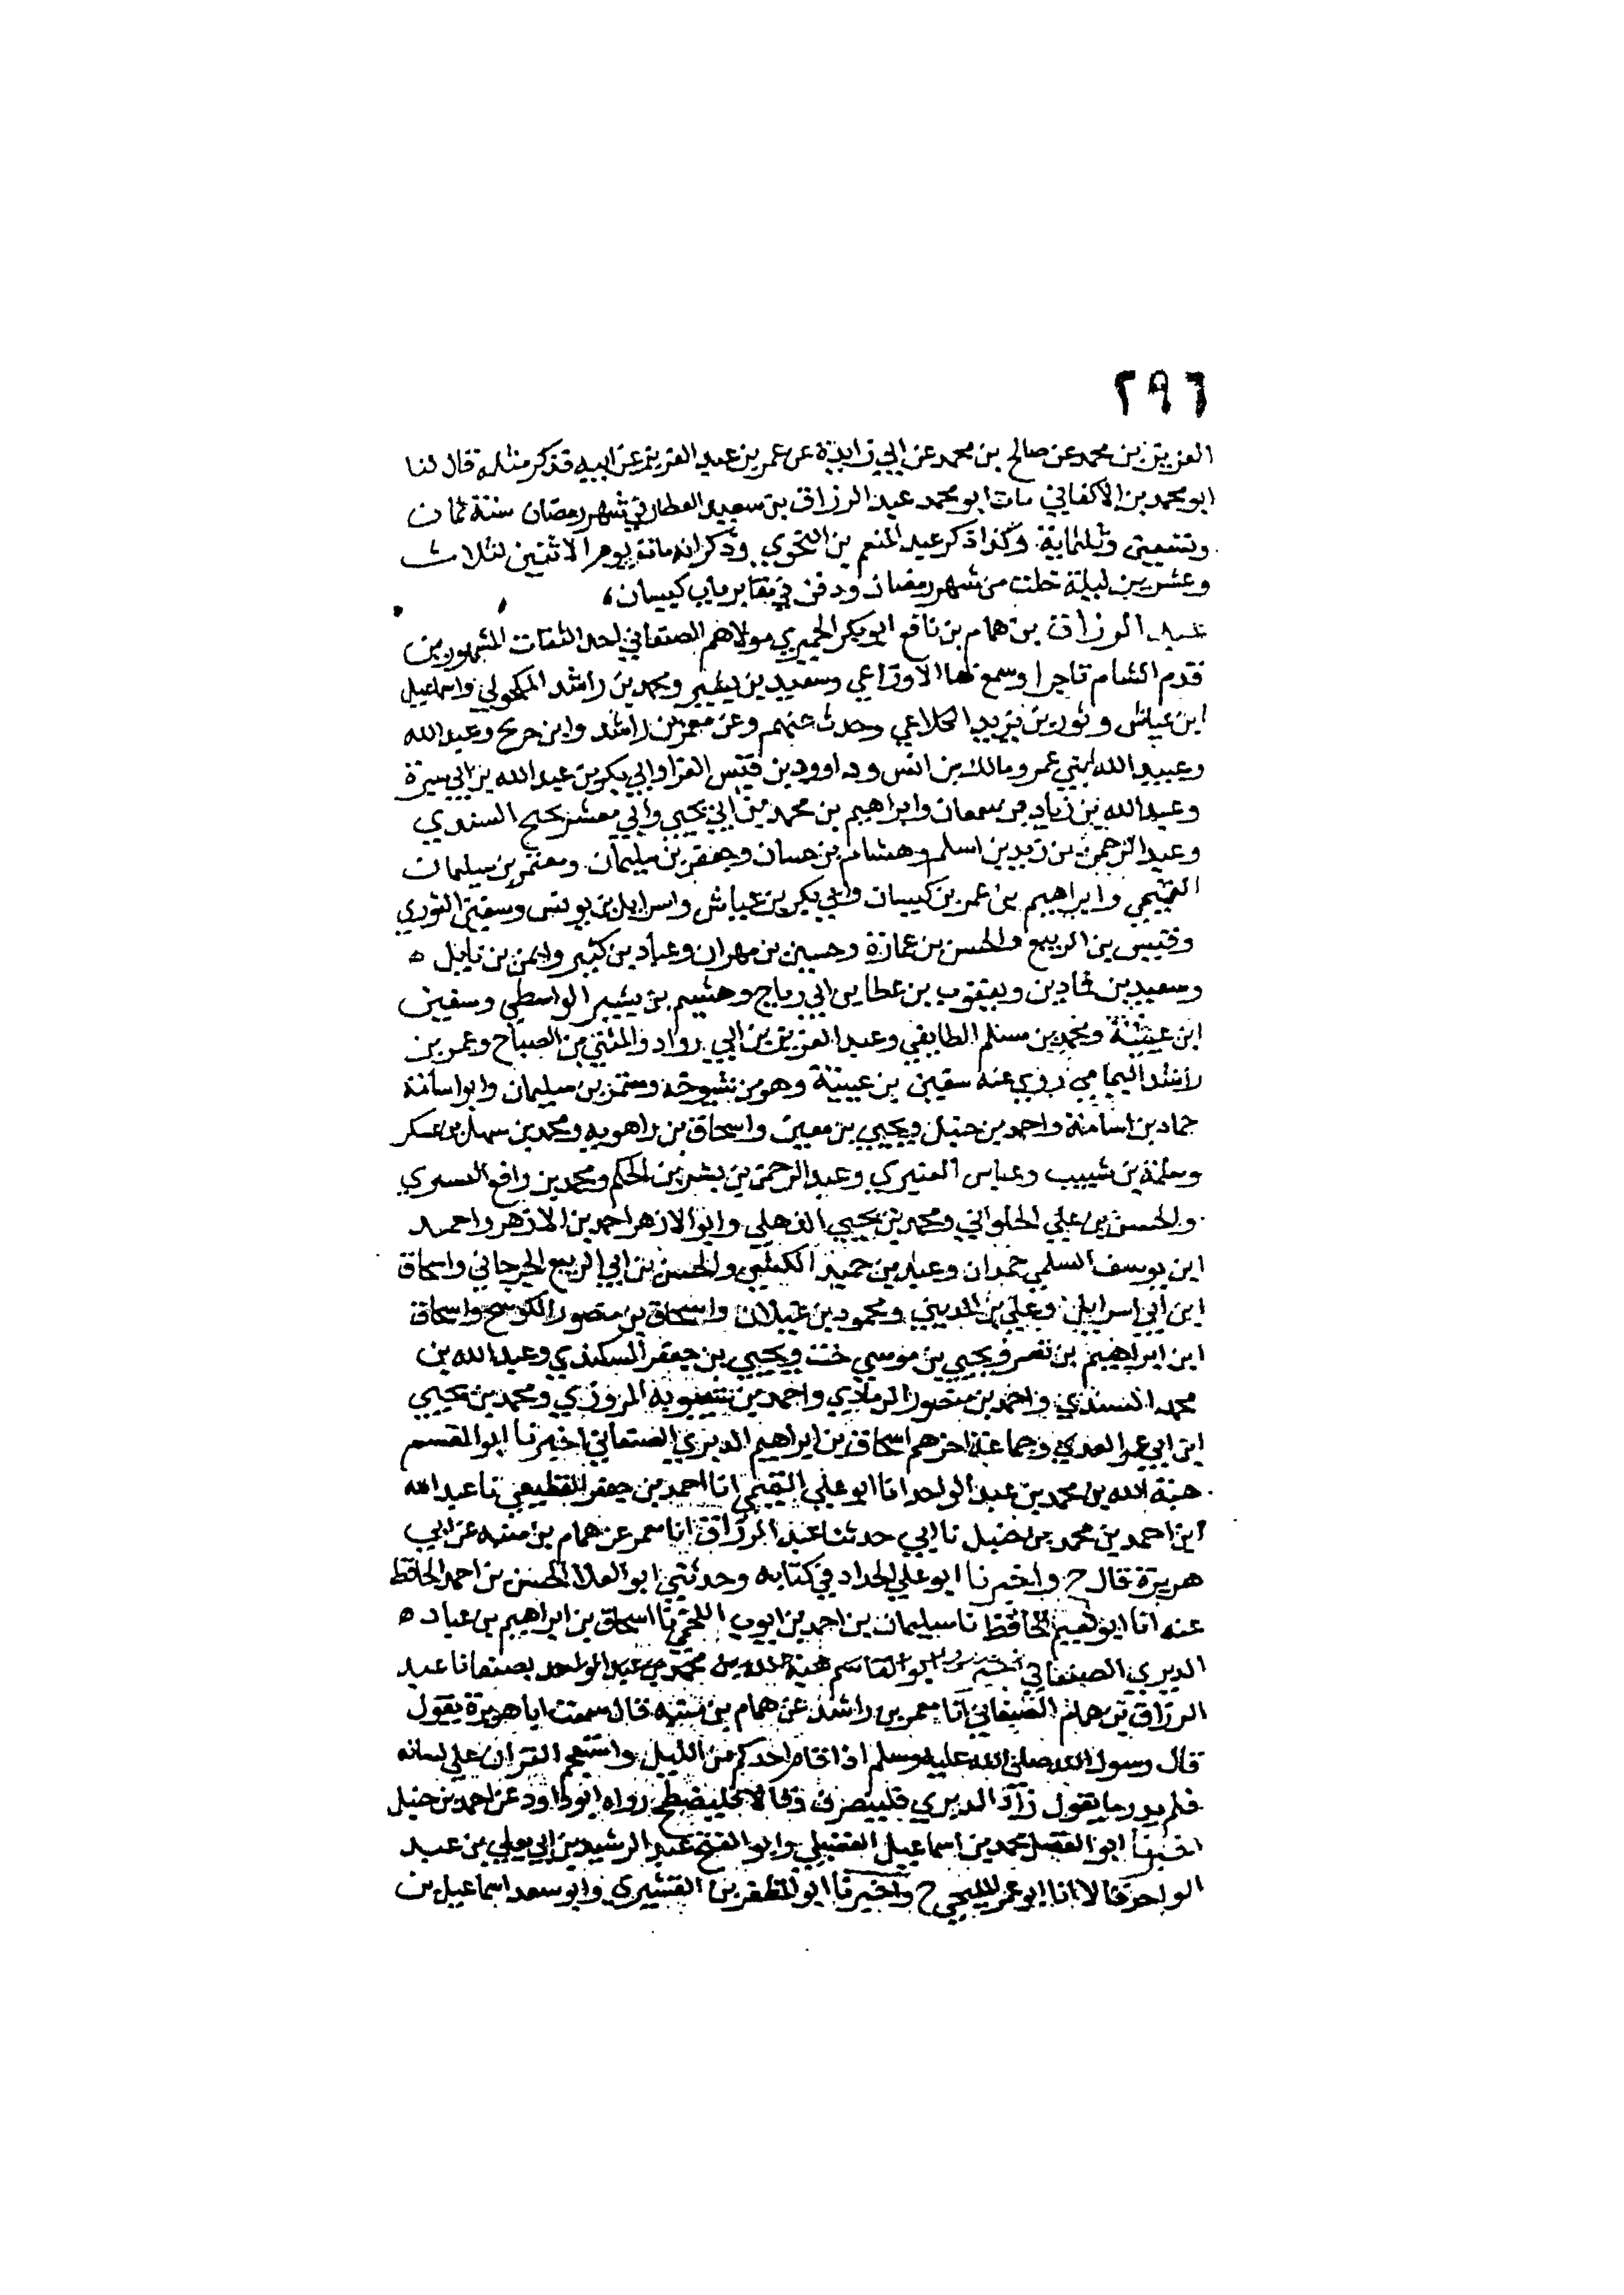 ٢٩٦
العزيز بن محمد عن صالح بن محمد عن ابي زايدة عن عمر بن عبد العزيز عن ابيه فذكر مثله قال لنا
ابو محمد بن الاكفاني مات ابو محمد عبد الرزاق بن سعيد العطار في شهر رمضان سنة ثمان
وتسعين وثلثماية وكذا ذكر عبد المنعم بن النحوي وذكر انه مات يوم الاثنين لثلاث
وعشرين ليلة خلت من شهر رمضان ودفن في مقابر باب كيسان
عبد الرزاق بن همام بن نافع ابو بكر الحميري مولاهم الصنعاني احد الثقات المشهورين
قدم الشام تاجرا وسمع بها الاوزاعي وسعيد بن بشير ومحمد بن راشد المكحولي واسماعيل
ابن عياش وثور بن يزيد الكلاعي وحدث عنهم وعن معمر بن راشد وابن جريج وعبد الله
وعبيد الله ابني عمر ومالك بن انس وداوود بن قيس الفرا وابي بكر بن عبد الله بن ابي سبرة
وعبد الله بن زياد بن سمعان وابراهيم بن محمد بن ابي يحيي وابي معشر نجيح السندي
وعبد الرحمن بن زيد بن اسلم وهشام بن حسان وجعفر بن سليمان ومعتمر بن سليمان
التيمي وابراهيم بن عمر بن كيسان وابي بكر بن عياش واسرايل بن يونس وسفين الثوري
وقيس بن الربيع والحسن بن عمارة وحسين بن مهران وعباد بن كثير وايمن بن نابل ه
وسعيد بن بن ويعقوب بن عطا بن ابي رباح وهشيم بن بشير الواسطي وسفين
ابن عيينة ومحمد بن مسلم الطايفي وعبد العزيز بن ابي رواد والمثني بن الصباح وعمر بن
راشد اليمامي روي عنه سفين بن عيينة وهو من شيوخه ومعتمر بن سليمان وابو اسامة
حماد بن اسامة واحمد بن حنبل ويحيي بن معين واسحاق بن راهويه ومحمد بن سهل بن عسكر
وسلمة بن شبيب وعباس العنبري وعبد الرحمن بن بشر بن الحكم ومحمد بن رافع
والحسن بن علي الحلواني ومحمد بن يحيي الذهلي وابو الازهر احمد بن الازهر واحمد
ابن يوسف السلمي حمدان وعبد بن حميد الكشي والحسن بن ابي الربيع الجرجاني واسحاق
ابن ابي اسرايل وعلي بن المديني ومحمود بن غيلان واسحاق بن منصور الكوسج واسحاق
ابن ابراهيم بن نصر ويحيي بن موسي خت ويحيي بن جعفر وعبد الله بن
محمد المسندي واحمد بن منصور الرمادي واحمد بن شبويه المروزي ومحمد بن يحيي
ابن ابي عمر العدني وجماعة اخرهم اسحاق بن ابراهيم الدبري الصنعاني اخبرنا ابو القسم
هبة الله بن محمد بن عبد الواحد انا ابو علي التميمي انا احمد بن جعفر القطيعي نا عبد الله
ابن احمد بن محمد بن حنبل نا ابي حدثنا عبد الرزاق انا معمر عن همام بن منبه عن ابي
هريرة قال ح واخبرنا ابو علي الحداد في كتابه وحدثني ابو العلا الحسن بن احمد الحافظ
عنه انا ابو نعيم الحافظ نا سليمان بن احمد بن ايوب اللخمي نا اسحاق بن ابراهيم بن عباد ه
الدبري الصنعاني ابو القاسم هبة الله بن محمد بن عبد الواحد بصنعا نا عبد
الرزاق بن همام الصنعاني انا معمر بن راشد عن همام بن منبه قال سمعت ابا هريرة يقول
قال رسول الله صلي الله عليه وسلم اذا قام احدكم من الليل واستعجم القران علي لسانه
فلم يدر ما يقول زاد الدبري فلينصرف وقالا فليضطجع رواه ابو داود عن احمد بن حنبل
اخبرنا ابو الفضل محمد بن اسماعيل الفضيلي وابو الفتح عبد الرشيد بن ابي يعلي بن عبد
الواحد قالا انا ابو عمر المليحي ح واخبرنا ابو المظفر بن القشيري وابو سعد اسماعيل بن